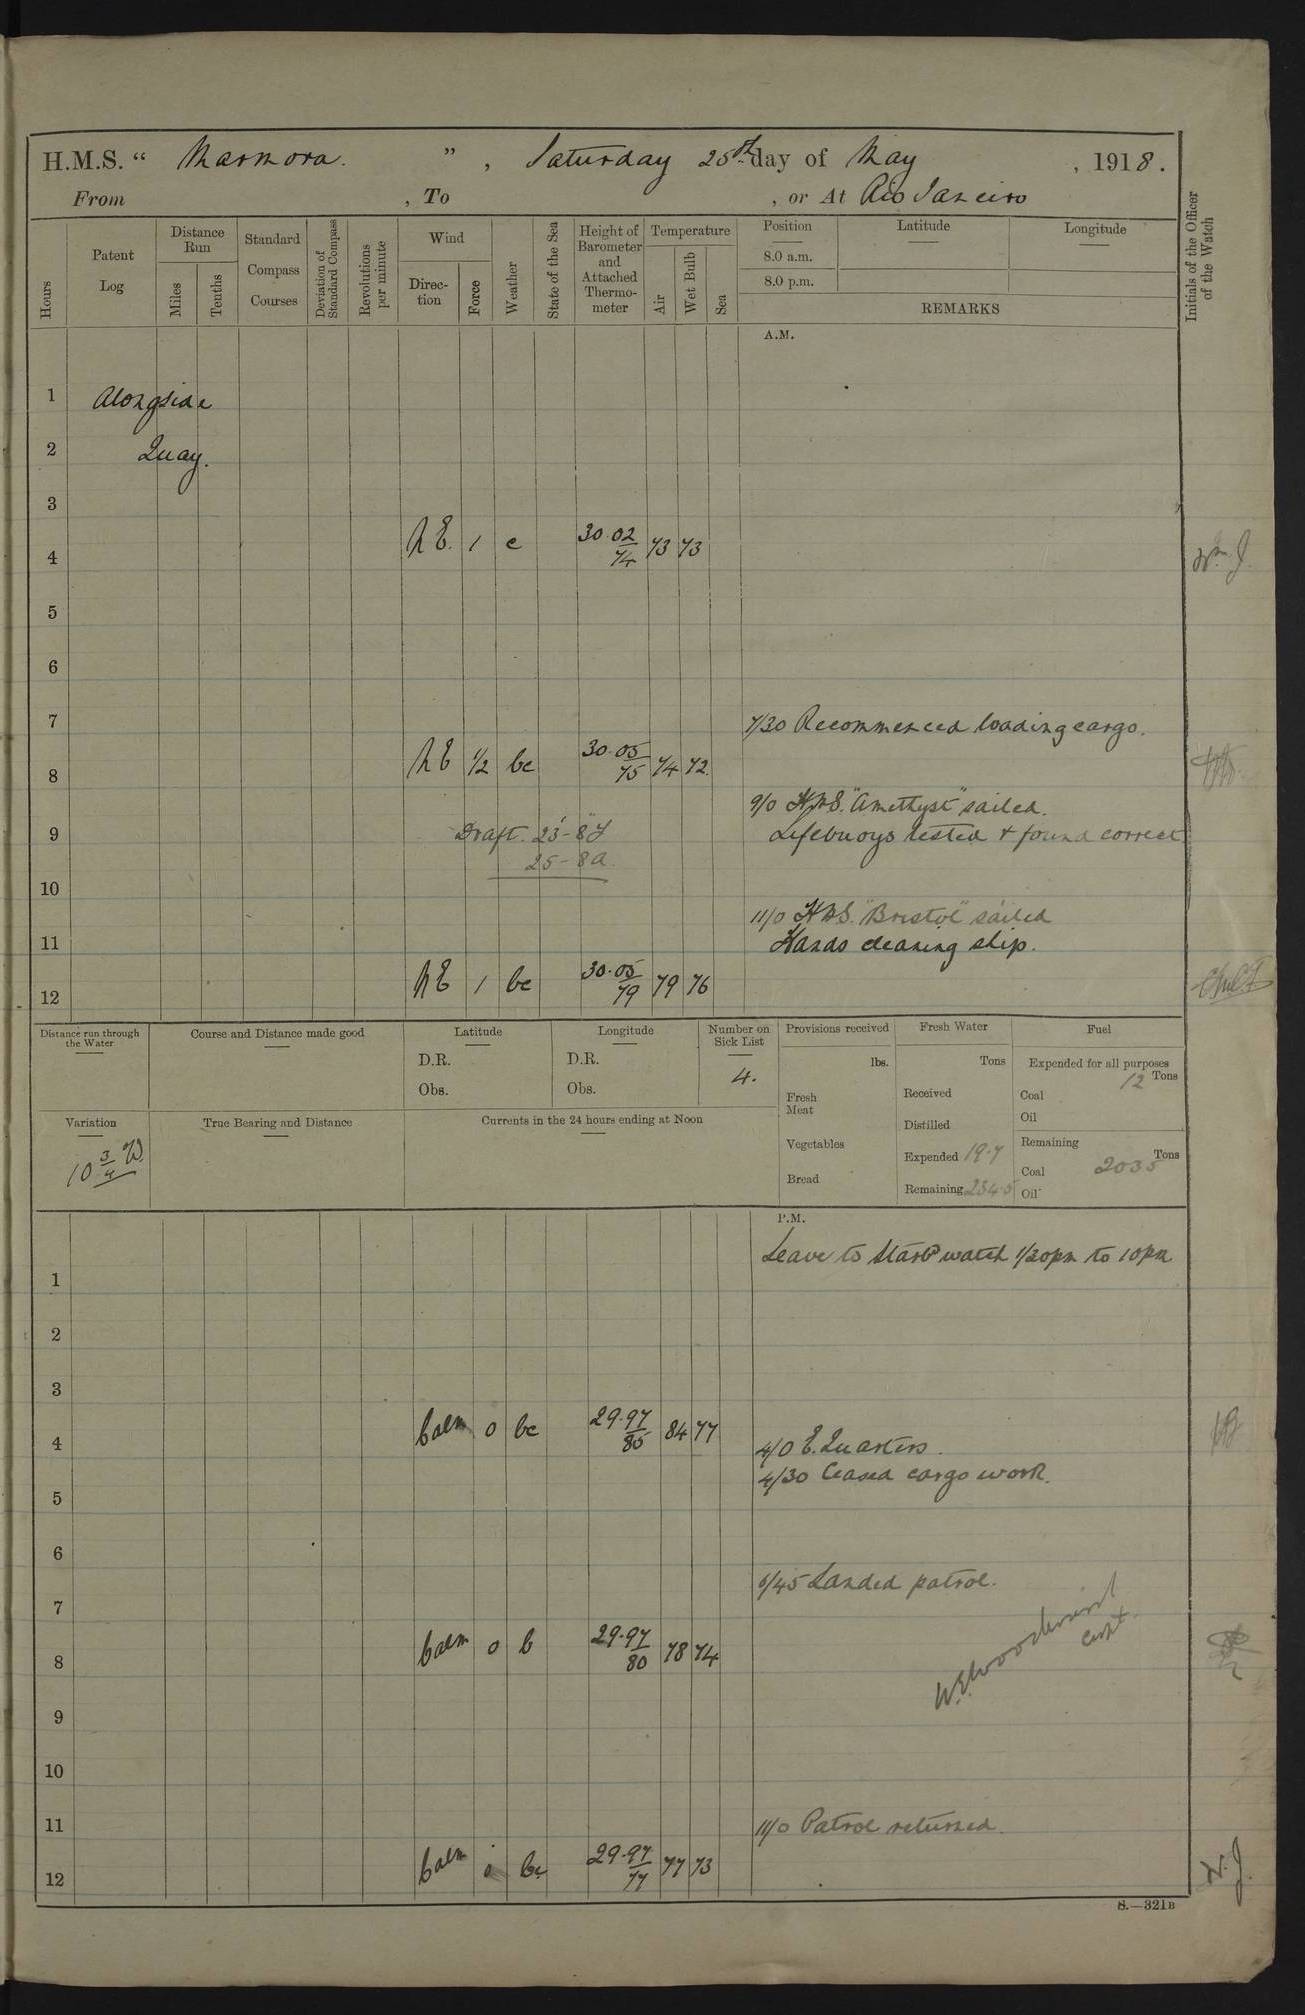 H.M.S. “ Marmora. ” , Saturday 25th day of May , 1918.
From , To , or At Rio Janeiro
Hours
Patent Log
Distance Run
Miles
Tenths
Standard Compass Courses
Deviation of Standard Compass
Revolutions per minute
Wind
Direction
Force
Weather
State of the Sea
Height of Barometer and Attached Thermometer
Temperature
Air
Wet Bulb
Sea
Position
8.0 a.m.
8.0 p.m.
Latitude
Longitude
REMARKS
Initials of the Officer of the Watch
A.M.
1 Alongside
2 Quay.
3
4 NE. 1 c 30.02 74 73 73
5
6
7 7/30 Recommenced loading cargo.
8 NE 1/2 bc 30.05 75 74 72.
9/0 HMS. "Amethyst" sailed.
9 Draft. 23'-8" F Lifebuoys tested & found correct
25-8 A.
10
11/0 HMS. "Bristol" sailed
11 Hands cleaning ship.
12 NE 1 bc 30.05 79 79 76
Distance run through the Water
Course and Distance made good
Latitude
D.R.
Obs.
Longitude
D.R.
Obs.
Number on Sick List
4.
Provisions received
lbs.
Fresh Meat
Vegetables
Bread
Fresh Water
Tons
Received
Distilled
Expended 19.7
Remaining 234.5
Fuel
Expended for all purposes
12 Tons
Coal
Oil
Remaining
Tons
Coal 2035
Oil
Variation
10 3/4 W.
True Bearing and Distance
Currents in the 24 hours ending at Noon
P.M.
Leave to Starbd watch 1/30pm to 10pm
1
2
3
4 Calm 0 bc 29.97 85 84 77
4/0 E. Quarters.
4/30 Ceased cargo work.
5
6
6/45 Landed patrol.
7
8 Calm 0 b 29.97 80 78 74
W.E. Woodward
Capt.
9
10
11 11/0 Patrol returned.
12 Calm 0 bc 29.97 77 77 73
S.—321B